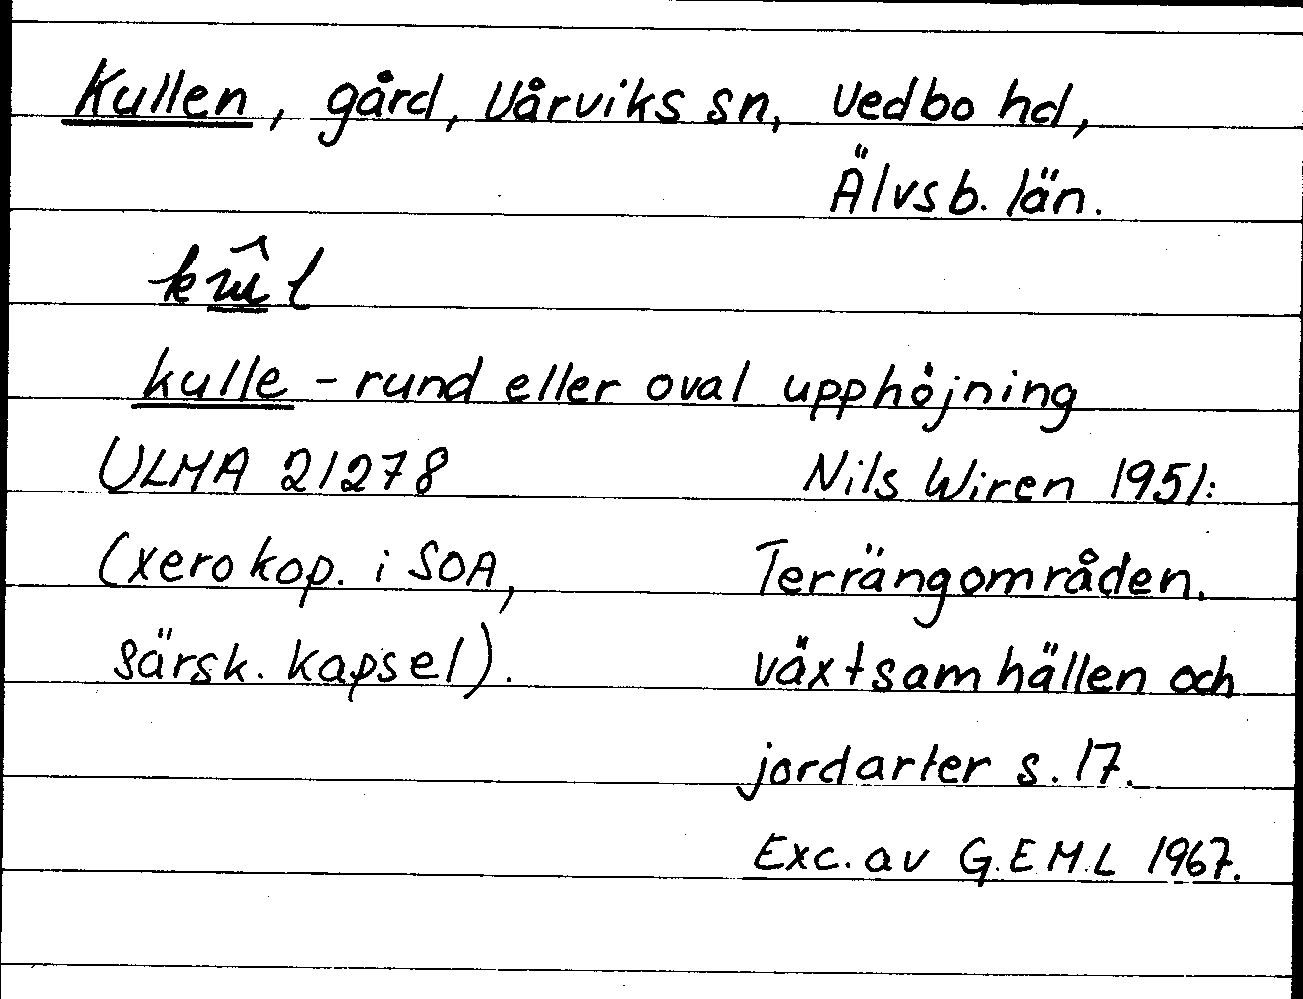 Kullen, gård, Vårviks sn, Vedbo hd,
Älvsb. län.
kulle - rund eller oval upphöjning
ULMA 21278
(xerokop. i SOA,
särsk. kapsel).
Nils Wiren 1951:
Terrängområden.
växtsamhällen och
jordarter s. 17.
Exc. av G.E.M.L 1967.